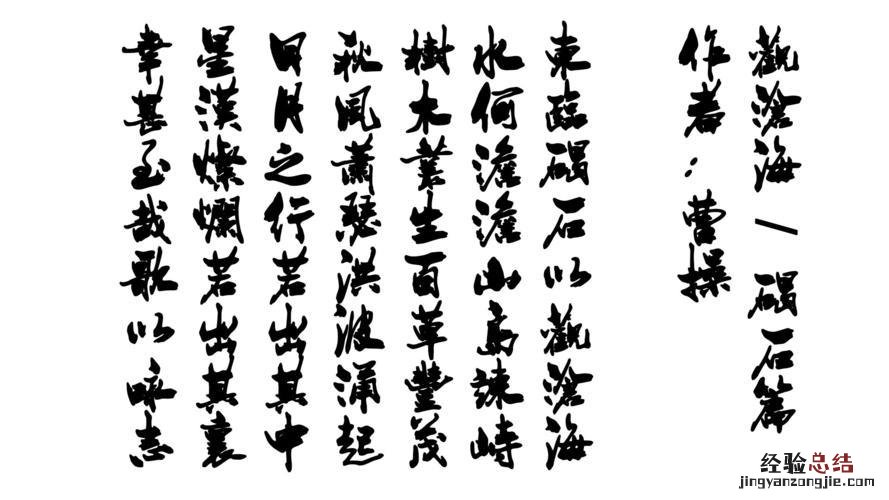 觀滄海一碣石篇
作者：曹操
東臨碣石以觀滄海
水何澹澹山島竦峙
樹木叢生百草豐茂
秋風蕭瑟洪波涌起
日月之行若出其中
星漢燦爛若出其裏
幸甚至哉歌以詠志
经验总结
jingyanzongjie.com